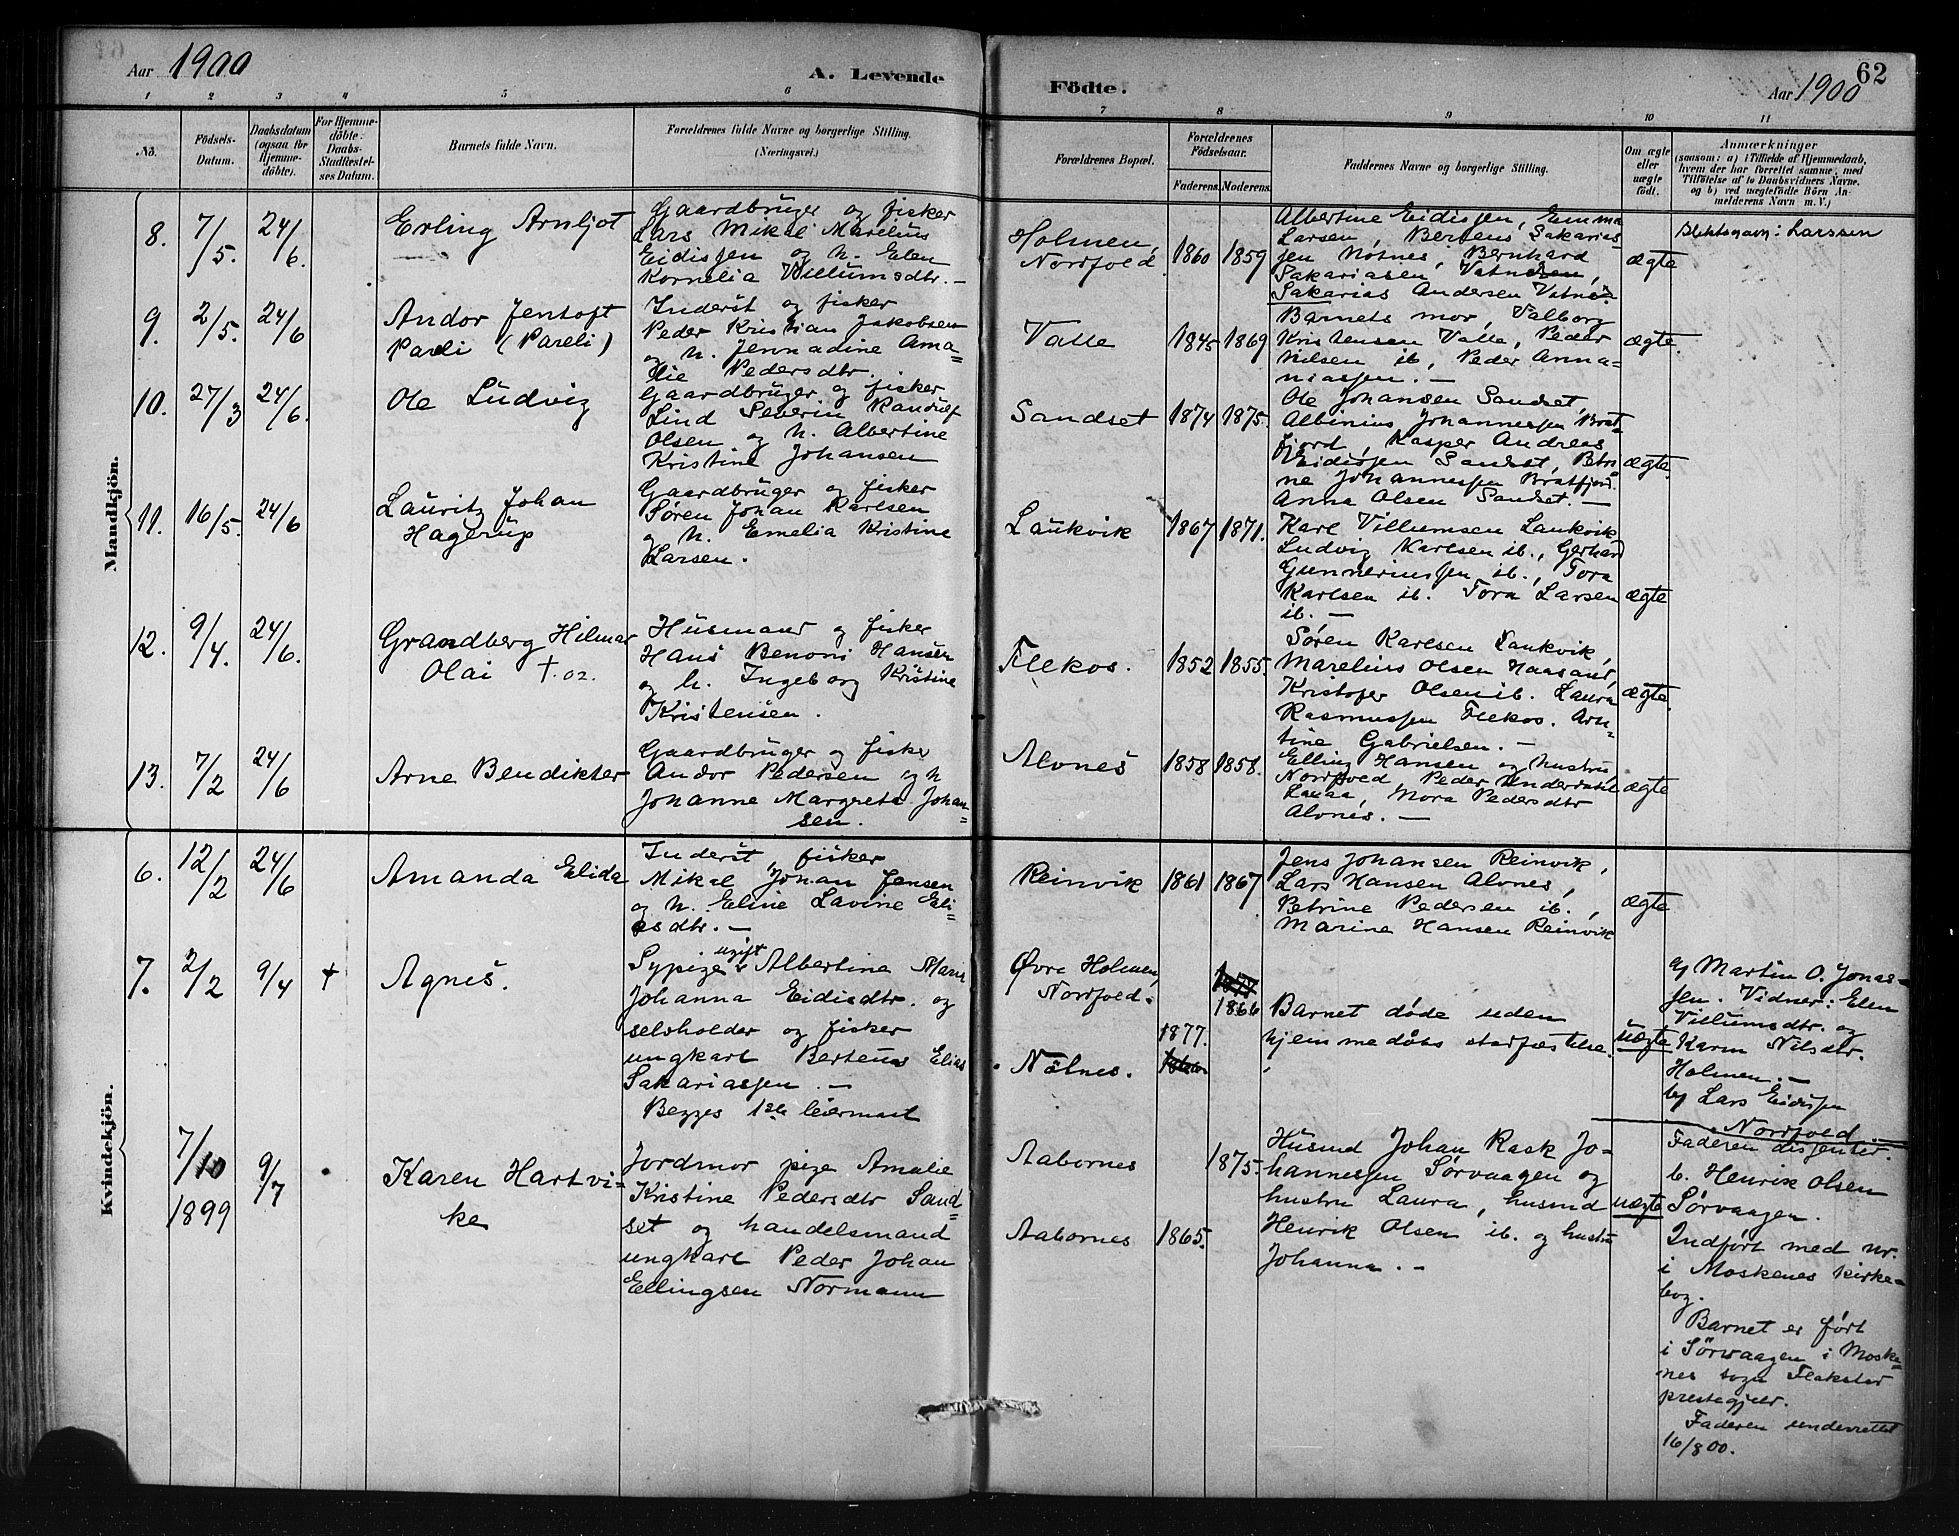 62
Aar 1900
A. Levende Födte.
Aar 1900
1 2 3 4 5 6 7 8 9 10 11
No.
Födsels-
Datum.
Daabsdatum
(ogsaa for
Hjemme-
döbte).
For Hjemme-
döbte:
Daabs-
Stadfæstel-
ses Datum.
Barnets fulde Navn.
Forældrenes fulde Navne og borgerlige Stilling.
(Næringsvei.)
Forældrenes Bopæl.
Forældrenes
Födselsaar.
Faderens. Moderens.
Faddernes Navne og borgerlige Stilling.
Om ægte
eller
uægte
født.
Anmærkninger
(saasom: a) i Tilfælde af Hjemmedaab,
hvem der har forrettet samme, med
Tilføielse af to Daabsvidners Navne,
og b) ved uægtefödte Börn An-
melderens Navn m. V.)
Mandkjön.
8. 7/5. 24/6.
Erling Arnljot
Gaardbruger og fisker
Lars Mikal Marelius
Eidissen og h. Elen
Kornelia Villumsdtr. —
Holmen,
Nordfold
1860 1859
Albertine Eidissen, Emma
Larsen, Berteus Sakarias-
sen Nötnes, Bernhard
Sakariasen Vatnes,
Sakarias Andersen Vatnes.
ægte
Slektsnavn: Larssen
9. 2/5. 24/6
Andor Jentoft
Pareli (Pareli)
Inderst og fisker
Peder Kristian Jakobsen
og h. Jennadine Ama-
lie Pedersdtr.
Valle
1845 1869
Barnets mor, Valborg
Kristensen Valle, Peder
Nilsen ib., Peder Anna-
niassen. —
ægte.
10. 27/3 24/6.
Ole Ludvig
Gaardbruger og fisker
Lind Severin Randulf
Olsen og h. Albertine
Kristine Johansen
Sandset
1874 1875.
Ole Johansen Sandset,
Albinius Johannessen Brat-
fjord, Kasper Andreas
Eidissen Sandset, Petri-
ne Johannessen Bratfjord.
Anna Olsen Sandset. —
ægte.
11. 16/5. 24/6
Lauritz Johan
Hagerup
Gaardbruger og fisker
Søren Johan Karlsen
og h. Emelia Kristine
Larsen.
Laukvik
1867 1871.
Karl Villumsen Laukvik
Ludvig Karlsen ib., Gerhard
Gunneriussen ib., Tora
Karlsen ib. Tora Larsen
ib. —
ægte
12. 9/4. 24/6.
Grandberg Hilmar
Olai † 02.
Husmand og fisker
Hans Benoni Hansen
og h. Ingeborg Kristine
Kristensen.
Flekos.
1852 1855.
Søren Karlsen Laukvik,
Marelius Olsen Haasand,
Kristofer Olsen ib. Laura
Rasmussen Flekos. Arn-
tine Gabrielsen. —
ægte.
13. 7/2 24/6
Arne Bendikter
Gaardbruger og fisker
Andor Pedersen og h
Johanne Margrete Johan-
sen.
Alvnes
1858 1858.
Elling Hansen og hustru
Nordfold, Peder
Mora Pedersdtr
Alvnes. —
ægte
Kvindekjön.
6. 12/2 24/6
Amanda Elida
Inderst, fisker
Mikal Johan Jensen
og h. Eline Lavine Eli-
asdtr. —
Reinvik
1861 1867
Jens Johansen Reinvik,
Lars Hansen Alvnes,
Petrine Pedersen ib.,
Marine Hansen Reinvik
ægte
7. 2/2 9/4 +
Agnes.
Sypige ugift Albertine Maria
Johanna Eidisdtr. og
selvholder og fisker
ungkarl Berteus Elias
Sakariassen. —
Begges 1ste leiermaal
Øvre Holmen,
Nordfold.
Nötnes.
1866
1877.
Barnet døde uden
hjemmedåbs stadfæstelse.
uægte
a) Martin O. Jonas-
sen. Vidner: Elen
Villumsdtr. og
Karen Nilsdtr.
Holmen. —
b) Lars Eidissen
Nordfold. —
7/10 1899 9/7
Karen Hartvi-
ke
Jordmor pige Amalie
Kristine Pedersdtr Sand-
set og handelsmand
ungkarl Peder Johan
Ellingsen Normann
Aabornes
Aabornes
1875.
1865.
Husmd Johan Rask Jo-
hannessen Sørvaagen og
hustru Laura, husmd
Henrik Olsen ib. og hustru
Johanna. —
uægte
Faderen dissenter.
b. Henrik Olsen
Sørvaagen.
Indført med nr.
i Moskenes kirke-
bog.
Barnet er født
i Sørvaagen i Moske-
nes sogn Flakstad
prestegjeld.
Faderen underrettet
16/8 00.